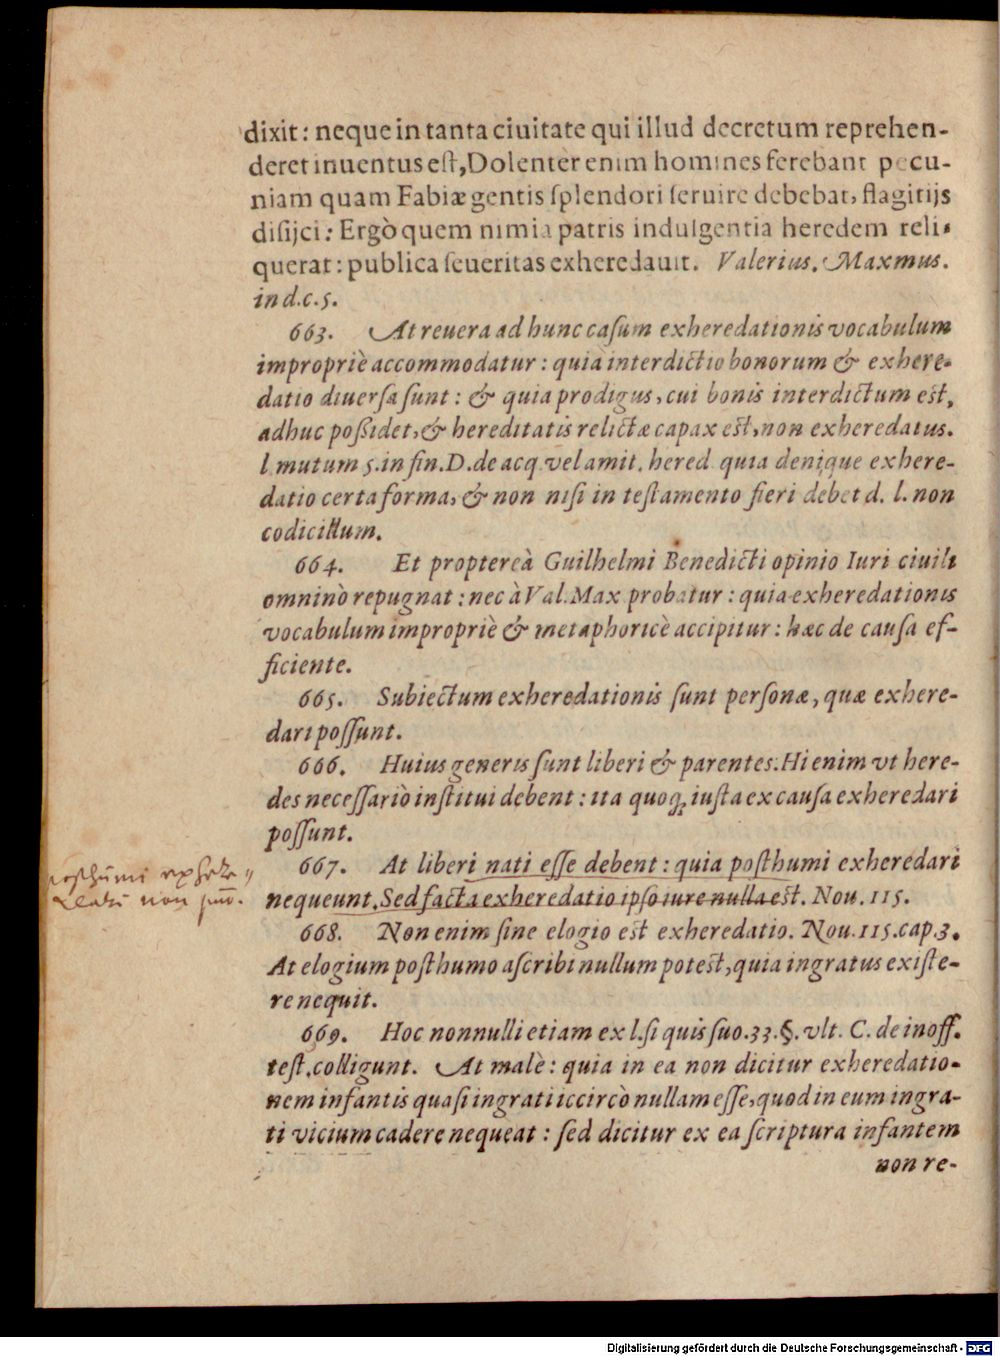 dixit: neque in tanta ciuitate qui illud decretum reprehen-
deret inuentus est, Dolenter enim homines ferebant pecu-
niam quam Fabiæ gentis splendori seruire debebat, flagitijs
disijci: Ergò quem nimia patris indulgentia heredem reli-
querat: publica seueritas exheredauit. Valerius. Maxmus.
in d.c.5.
663. At reuera ad hunc casum exheredationis vocabulum
impropriè accommodatur: quia interdictio bonorum & exhere-
datio diuersa sunt: & quia prodigus, cui bonis interdictum est,
adhuc poßidet, & hereditatis relictæ capax est, non exheredatus.
l mutum 5. in fin. D. de acq vel amit. hered quia denique exhere-
datio certa forma, & non nisi in testamento fieri debet d. l. non
codicillum.
664. Et proptereà Guilhelmi Benedicti opinio Iuri ciuili
omninò repugnat: nec à Val. Max probatur: quia exheredationis
vocabulum impropriè & metaphoricè accipitur: hæc de causa ef-
ficiente.
665. Subiectum exheredationis sunt personæ, quæ exhere-
dari possunt.
666. Huius generis sunt liberi & parentes. Hi enim vt here-
des necessariò institui debent: ita quoq, iusta ex causa exheredari
possunt.
667. At liberi nati esse debent: quia posthumi exheredari
nequeunt. Sed facta exheredatio ipso iure nulla est. Nou. 115.
posthumi exhere-
dari non
668. Non enim sine elogio est exheredatio. Nou. 115. cap. 3.
At elogium posthumo ascribi nullum potest, quia ingratus existe-
re nequit.
669. Hoc nonnulli etiam ex l. si quis suo. 33. §. vlt. C. de inoff.
test. colligunt. At malè: quia in ea non dicitur exheredatio-
nem infantis quasi ingrati iccircò nullam esse, quod in eum ingra-
ti vicium cadere nequeat: sed dicitur ex ea scriptura infantem
non re-
Digitalisierung gefördert durch die Deutsche Forschungsgemeinschaft - DFG